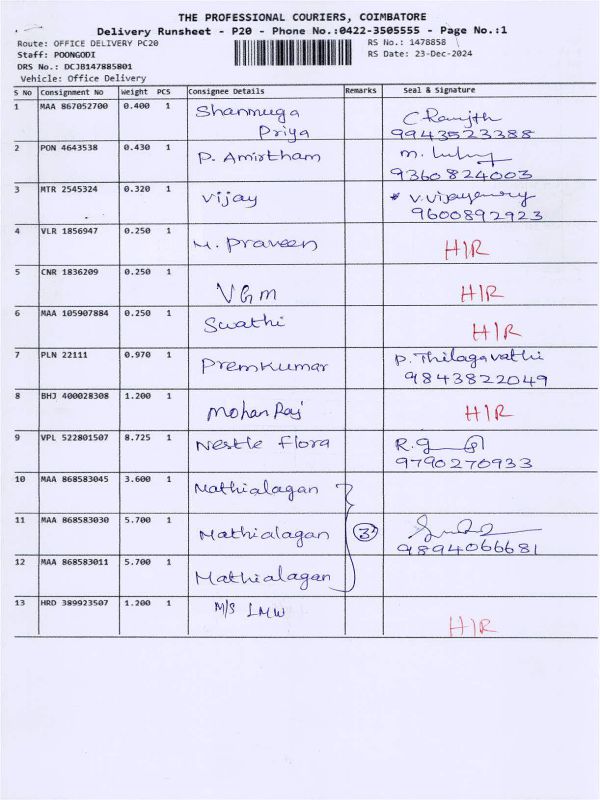 THE PROFESSIONAL COURIERS, COIMBATORE
Delivery Runsheet - P20 - Phone No.:0422-3505555 - Page No.:1
Route: OFFICE DELIVERY PC20 RS No.: 1478858
Staff: POONGODI RS Date: 23-Dec-2024
DRS No.: DCJB147885801
Vehicle: Office Delivery
S No Consignment No Weight PCS Consignee Details Remarks Seal & Signature
1 MAA 867052700 0.400 1 Shanmuga Priya C Ranjith
9943523388
2 PON 4643538 0.430 1 P. Amirtham m.
9360824003
3 MTR 2545324 0.320 1 Vijay V.
9600892923
4 VLR 1856947 0.250 1 M. Praveen HIR
5 CNR 1836209 0.250 1 VGM HIR
6 MAA 105907884 0.250 1 Swathi HIR
7 PLN 22111 0.970 1 Premkumar P. Thilagavathi
9843822049
8 BHJ 400028308 1.200 1 Mohan Raj HIR
9 VPL 522801507 8.725 1 Nestle flora R.
9790270933
10 MAA 868583045 3.600 1 Mathialagan
11 MAA 868583030 5.700 1 Mathialagan 3
9894066681
12 MAA 868583011 5.700 1 Mathialagan
13 HRD 389923507 1.200 1 M/S LMW HIR